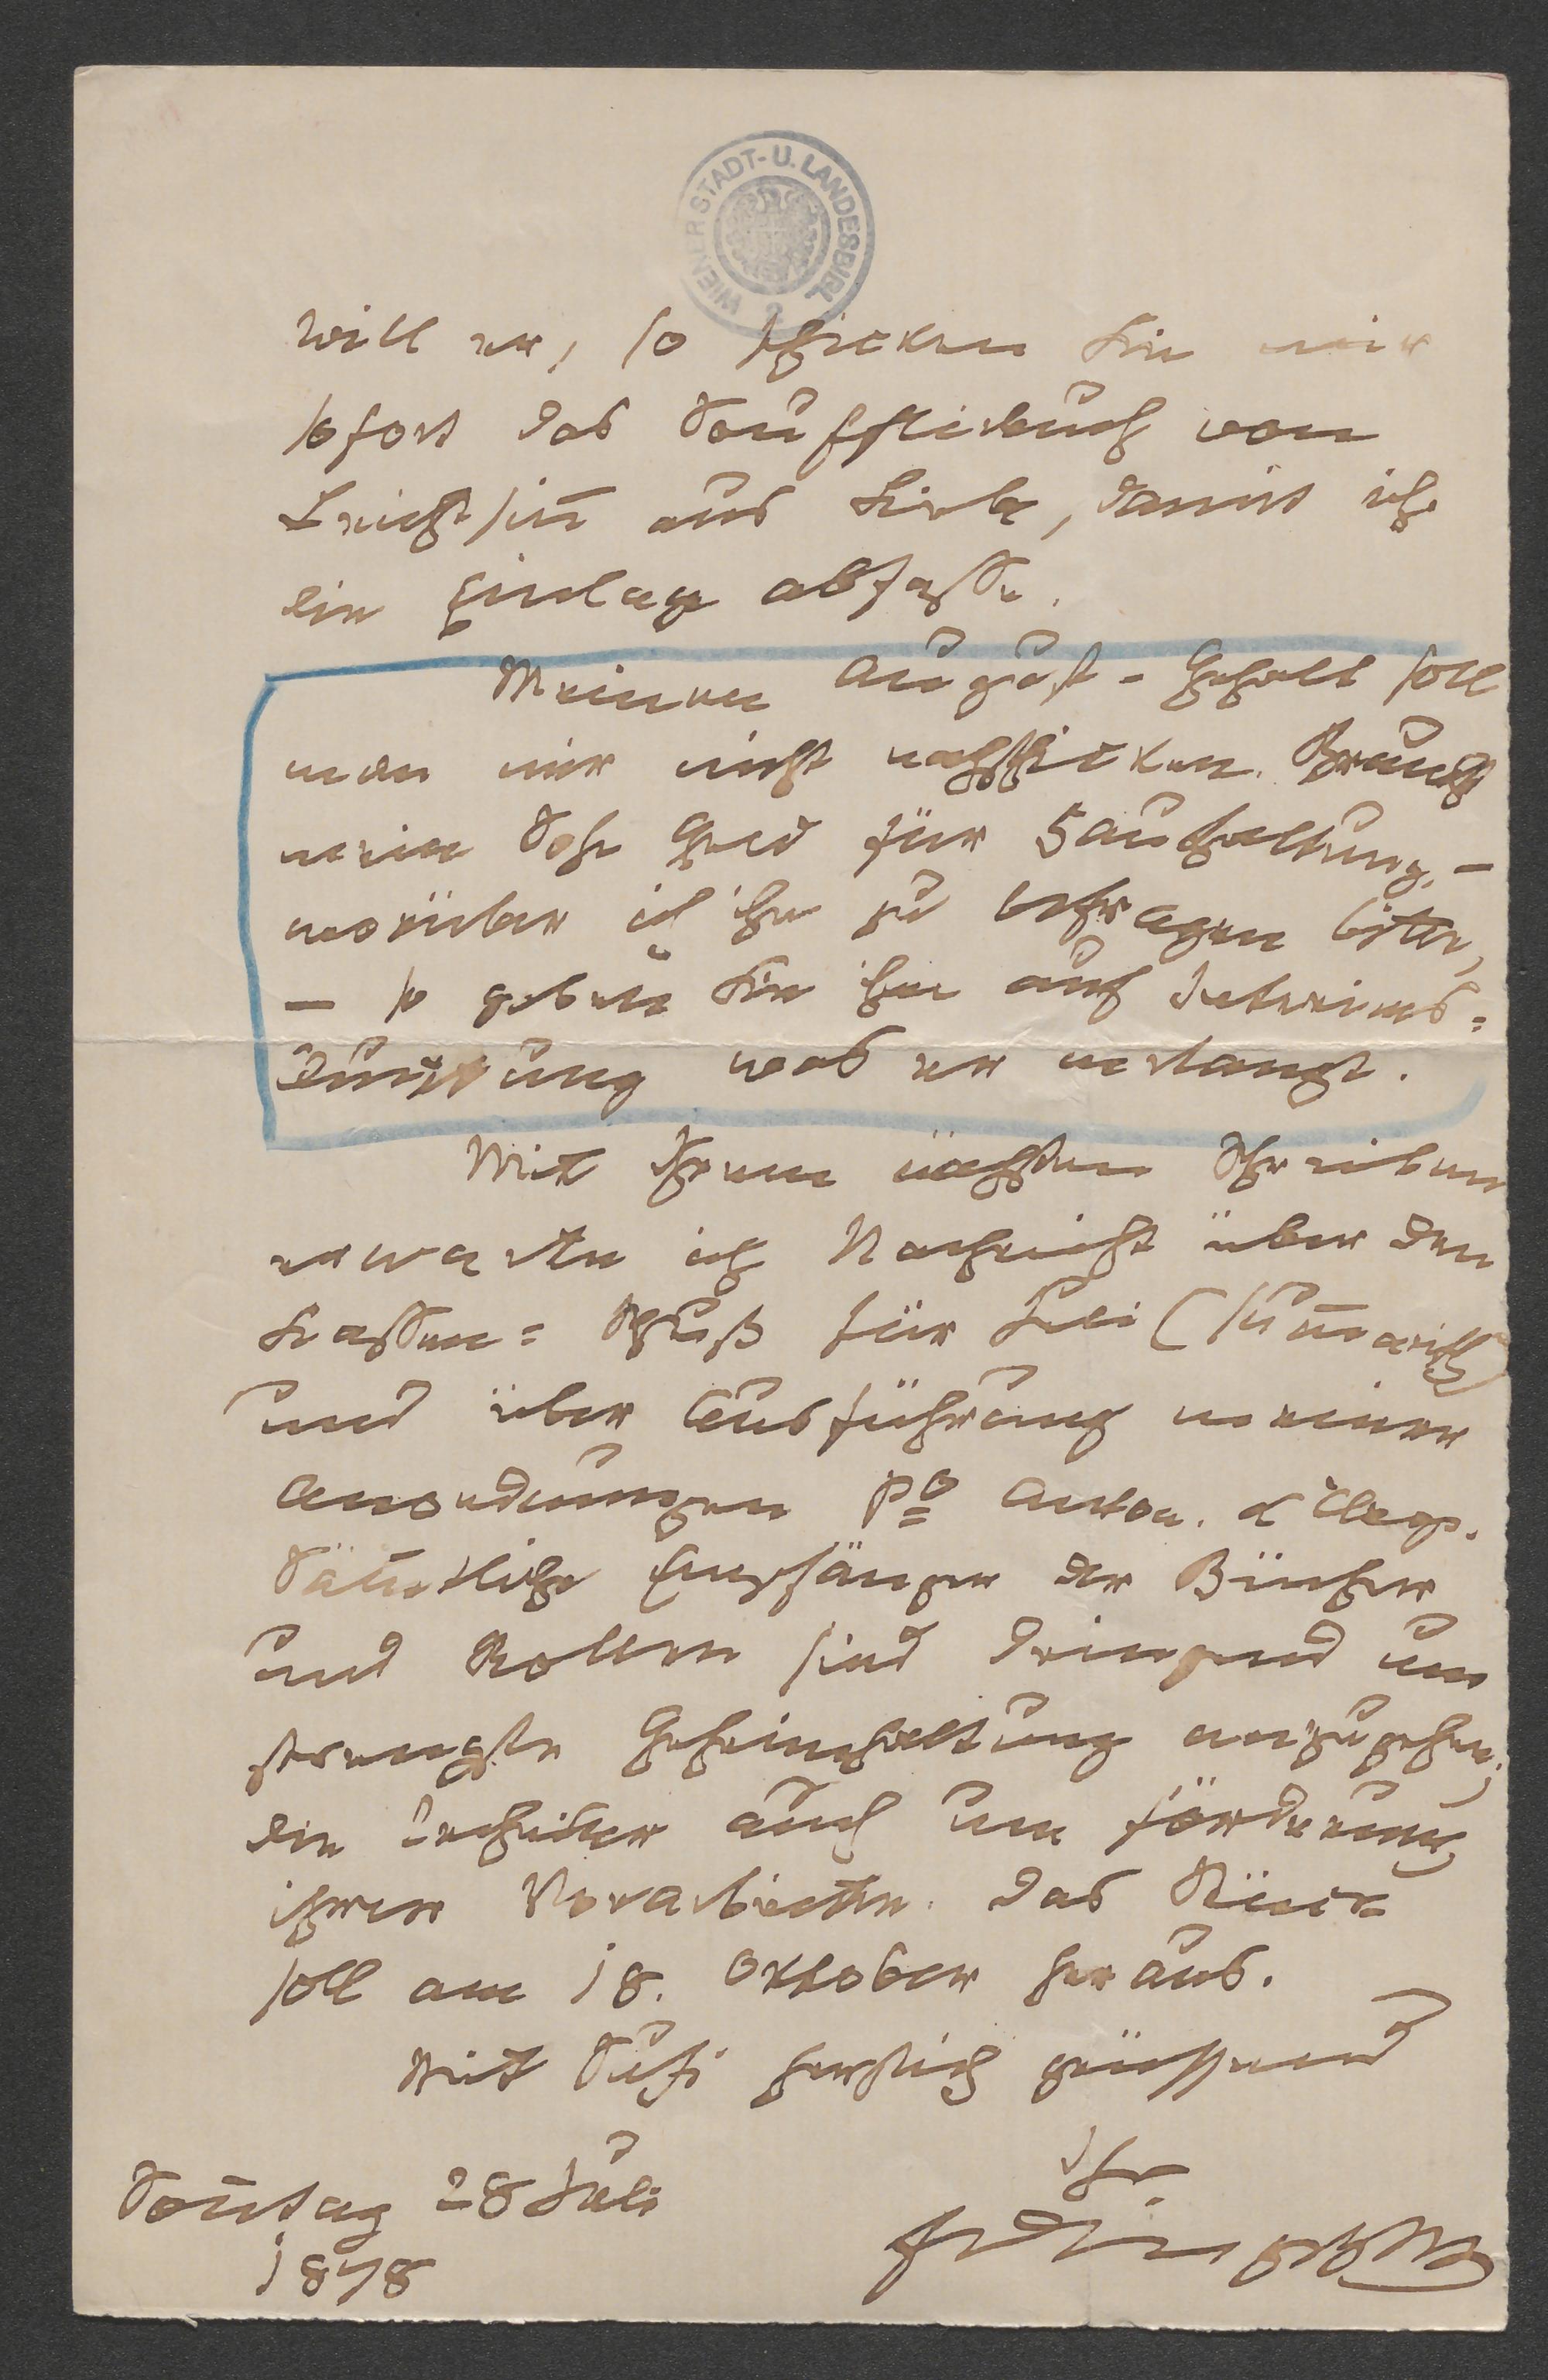 WIENER STADT- U. LANDESBIBL.
will er, so schicken Sie mir
sofort das Soufflierbuch von
Leichtsin̅ aus Liebe, damit ich
die Einlage abfasse.
Meinen August-Gehalt soll
man mir nicht nachschicken. Braucht
mein Sohn Geld für Haushaltung, –
worüber ich ihn zu befragen bitte,
– so geben Sie ihm auf Interims=
Quittung was er verlangt.
Mit Ihrem nächsten Schreiben
erwarte ich Nachricht über den
Kassen=Schluß für Juli (sum̅arisch)
und über Ausführung meiner
Anordnungen po Anton. & Cleop.
Säm̅tliche Empfänger der Bücher
und Rollen sind dringend um
strengste Geheimhaltung anzugehen;
die Techniker auch um Förderung
ihrer Vorarbeiten. Das Stück
soll am 18. Oktober heraus.
Mit herzlich grüssend
Ihr
FrDingelstedt
Son̅tag 28 Juli
1878